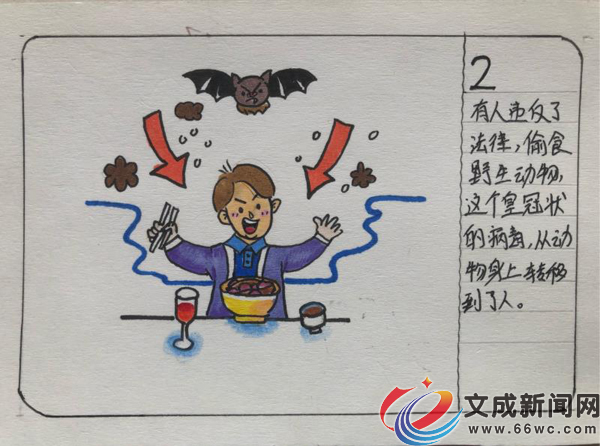 2
有人违反了
法律，偷食
野生动物，
这个皇冠状
的病毒，从动
物身上转移
到了人。
8
文成新闻网
www.66wc.com